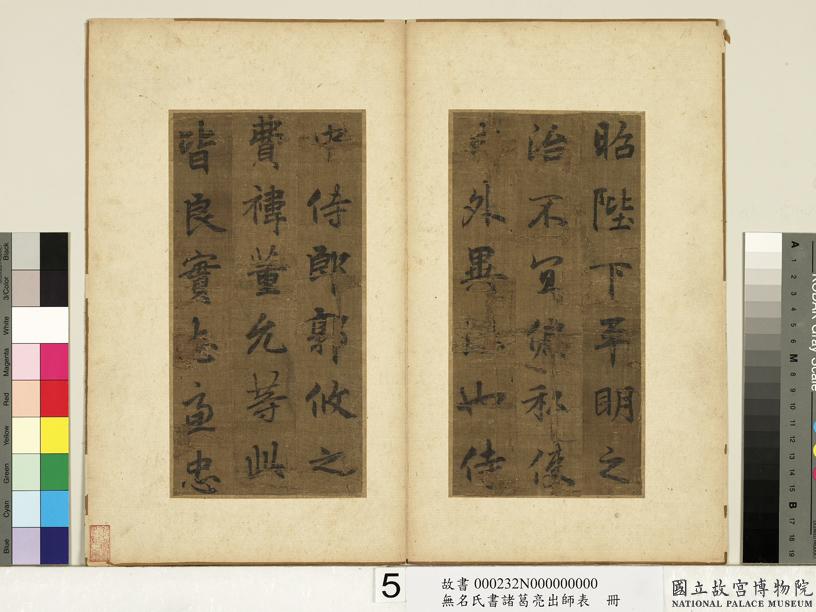 昭陛下平明之
治不宜偏私使
外異法也侍
中侍郎郭攸之
費禕董允等此
皆良實志慮忠
5
故書 000232N000000000
無名氏書諸葛亮出師表 冊
國立故宮博物院
NATIONAL PALACE MUSEUM
Black
3/Color
White
Magenta
Red
Yellow
Green
Cyan
Blue
A 1 2 3 4 5 6 M 8 9 10 11 12 13 14 15 B 17 18 19